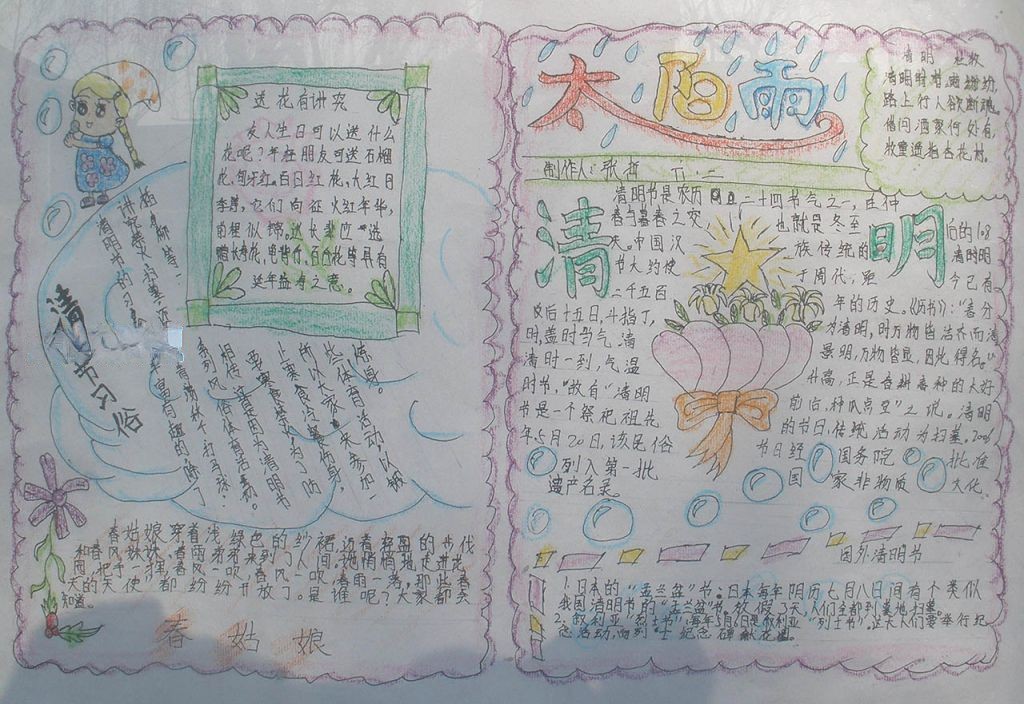 送花有讲究
友人生日可以送什么
花呢?年轻朋友可送石榴
花、
百日红花、大红月
它们向征火红年华,
前程似
送长辈应选
百花等具有
延年益寿之意。
清明节的习
讲究
清
节习俗
荡秋千、打马球、
富有趣的除了
系列风俗体育活动。
相传这是因为清明节
要寒食禁火,为了防
止寒食冷餐伤身,
所以大家来参加一
些体育活动,以锻
炼身。
春姑娘穿着浅绿色的纱裙,迈着轻盈的步伐
和春风妹妹、春雨弟弟来到了人间。她悄悄地走进花
园,把手一挥,春风一吹,春雨一落,那些春
天的天使都纷纷开放了。是谁呢?大家都会
知道。
春姑娘
太阳雨
清明 杜牧
清明时节雨纷纷,
路上行人欲断魂。
借问酒家何处有,
牧童遥指杏花村。
制作人:
六、二
清明
清明节是农历
二十四节气之一,在仲
春与暮春之交,
也就是冬至
后的108
天。中国汉
族传统的
清明
节大约始
于周代,距
今已有
二千五百
年的历史。《历书》:“春分
后十五日,斗指丁,
为清明,时万物皆洁齐而清
明,盖时当气清
景明,万物皆显,因此得名。”
清时一到,气温
升高,正是春耕春种的大好
时节,故有“清明
前后,种瓜点豆”之说。清明
节是一个祭祀祖先
的节日,传统活动为扫墓。2006
年5月20日,该民俗
节日经国务院批准
列入第一批
国家非物质文化
遗产名录。
国外清明节
1.日本的“盂兰盆”节。日本每年阴历七月八日间有个类似
我国清明节的“盂兰盆”节。放假了天,人们全都到墓地扫墓。
2.叙利亚“烈士节”。每年5月6日是叙利亚“列士节”。这天人们要举行纪
念活动,向列士纪念碑献花圈。